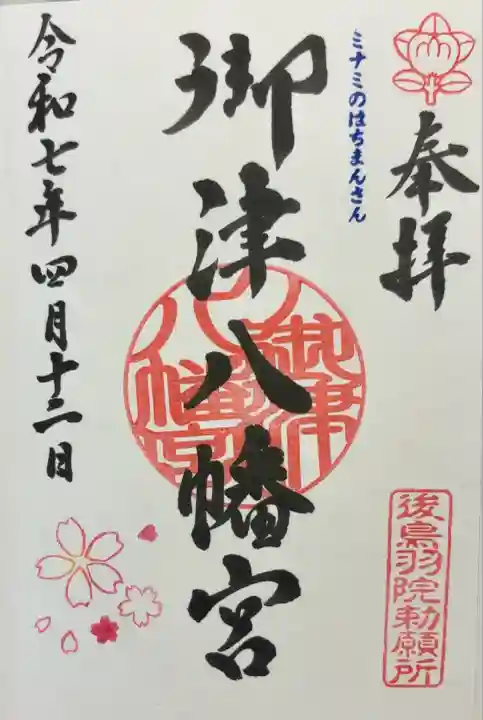 奉拝
後鳥羽院勅願所
ミナミのはちまんさん
御津八幡宮
御津八幡宮
令和七年四月十二日